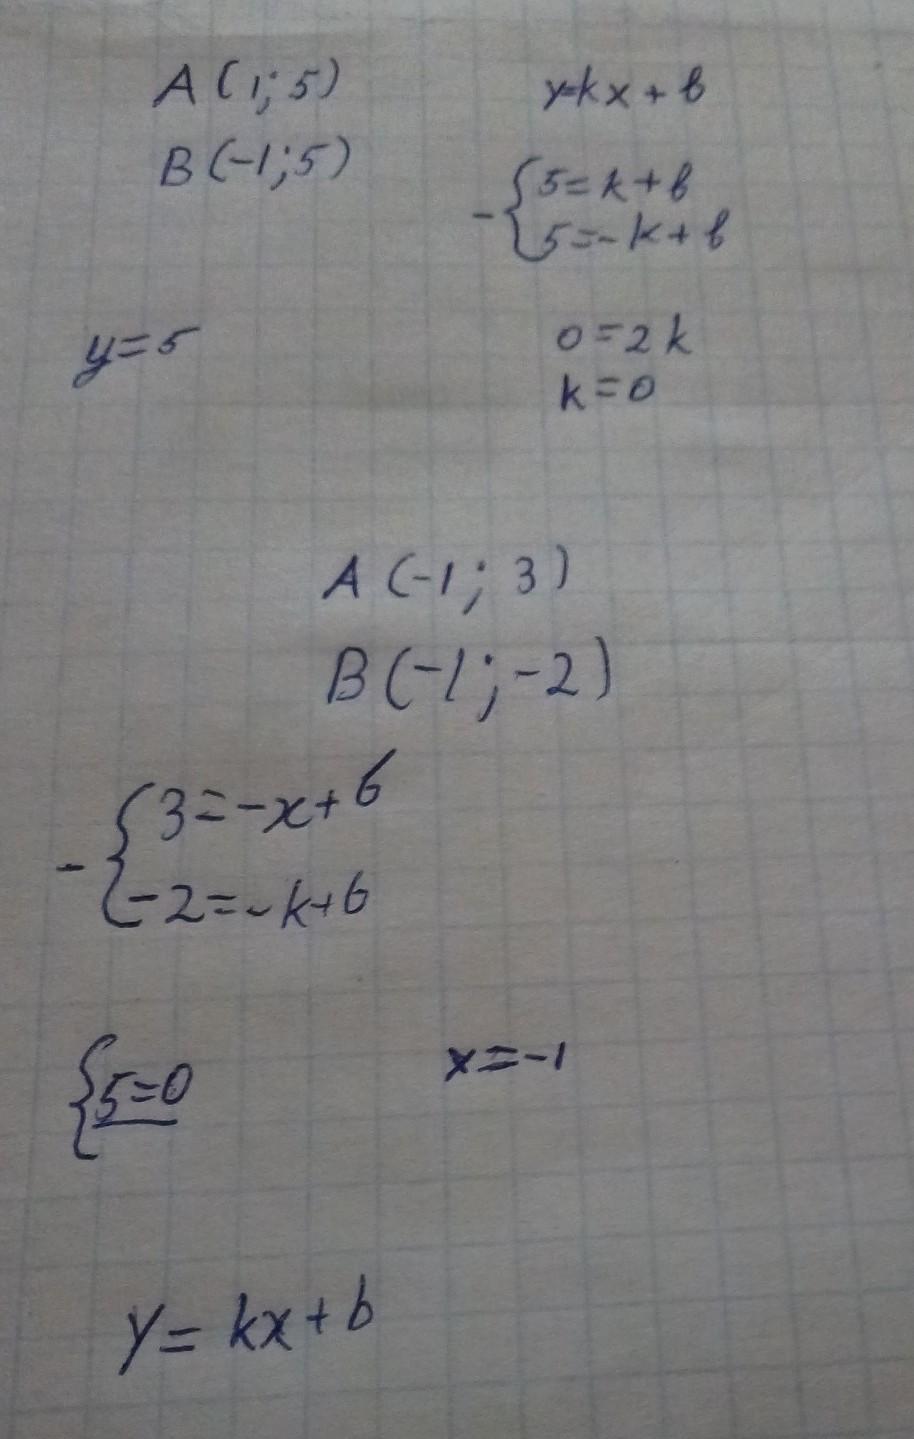 A(1; 5)
B(-1; 5)
y=kx + b
- { 5=k+b
5=-k+b
y=5
0=2k
k=0
A(-1; 3)
B(-1; -2)
- { 3=-x+b
-2=-k+b
{ 5=0
x=-1
y=kx+b